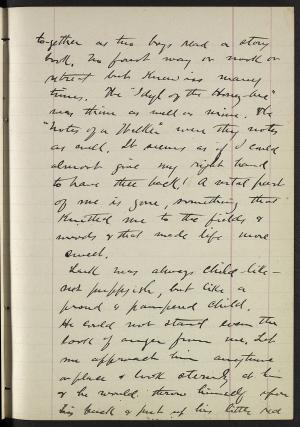 together as two boys read a story
book. No forest way or nook or
retreat but knew us many
times. The "Idyl of the Honey-bee"
was thine as well as mine. The
"Notes of a Walker" were thy notes
as well. It seems as if I could
almost give my right hand
to have thee back! A vital part
of me is gone, something that
knitted me to the fields &
woods & that made life more
sweet.
Lark was always child-like
not puppyish, but like a
proud & pampered child.
He could not stand even the
look of anger from me. Let
me approach him anytime
or place & look sternly at him
& he would throw himself upon
his back & put up his little red